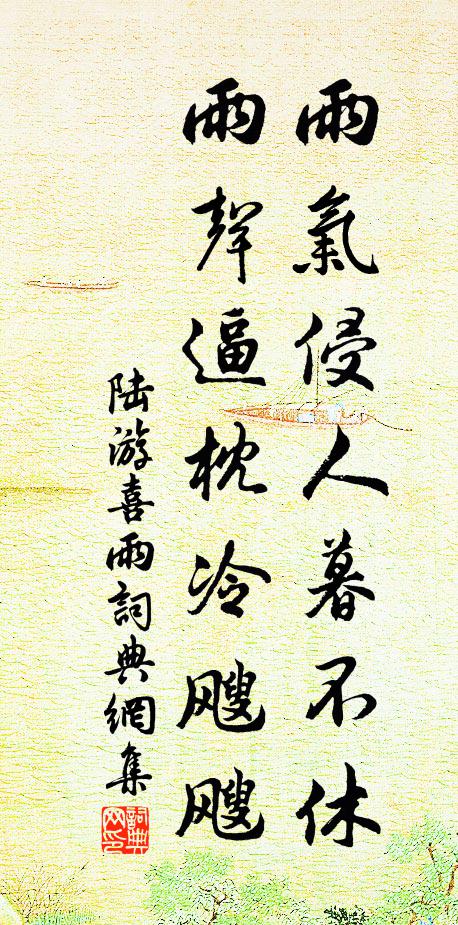 雨氣侵人暮不休
雨聲逼枕冷颼颼
陆游喜雨詞典網集
詞典網印